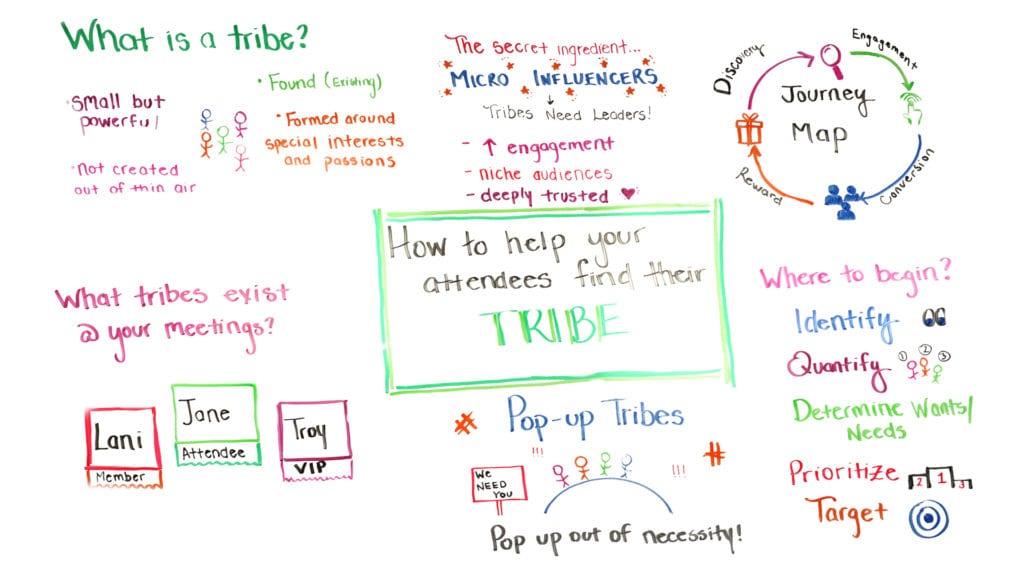 What is a tribe?
• Small but
powerful
• Not created
out of thin air
• Found (Existing)
• Formed around
special interests
and passions
The secret ingredient...
MICRO INFLUENCERS
Tribes Need Leaders!
- ↑ engagement
- niche audiences
- deeply trusted ♥
Discovery
Engagement
Journey
Map
Reward
Conversion
How to help your
attendees find their
TRIBE
What tribes exist
@ your meetings?
Lani
Member
Jane
Attendee
Troy
VIP
# Pop-up Tribes
#
!!!
!!!
We
NEED
YOU
Pop up out of necessity!
Where to begin?
Identify
Quantify
1 2 3
Determine Wants/
Needs
Prioritize
2 1 3
Target